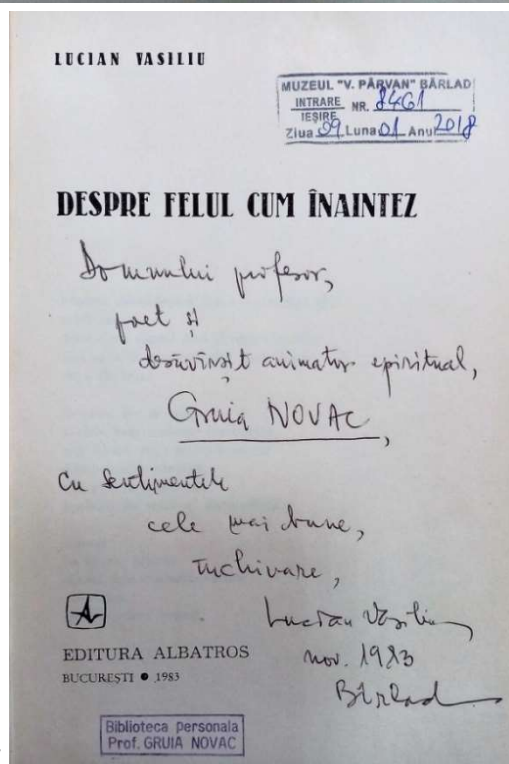 LUCIAN VASILIU
MUZEUL "V. PÂRVAN" BÂRLAD
INTRARE NR. 8461
IEȘIRE
Ziua 09 Luna 01 Anu 2018
DESPRE FELUL CUM ÎNAINTEZ
Domnului profesor,
poet și
desăvîrșit animator spiritual,
Gruia NOVAC,
Cu sentimentele
cele mai bune,
închinare,
Lucian Vasiliu
nov. 1983
Bîrlad
EDITURA ALBATROS
BUCUREȘTI ● 1983
Biblioteca personala
Prof. GRUIA NOVAC